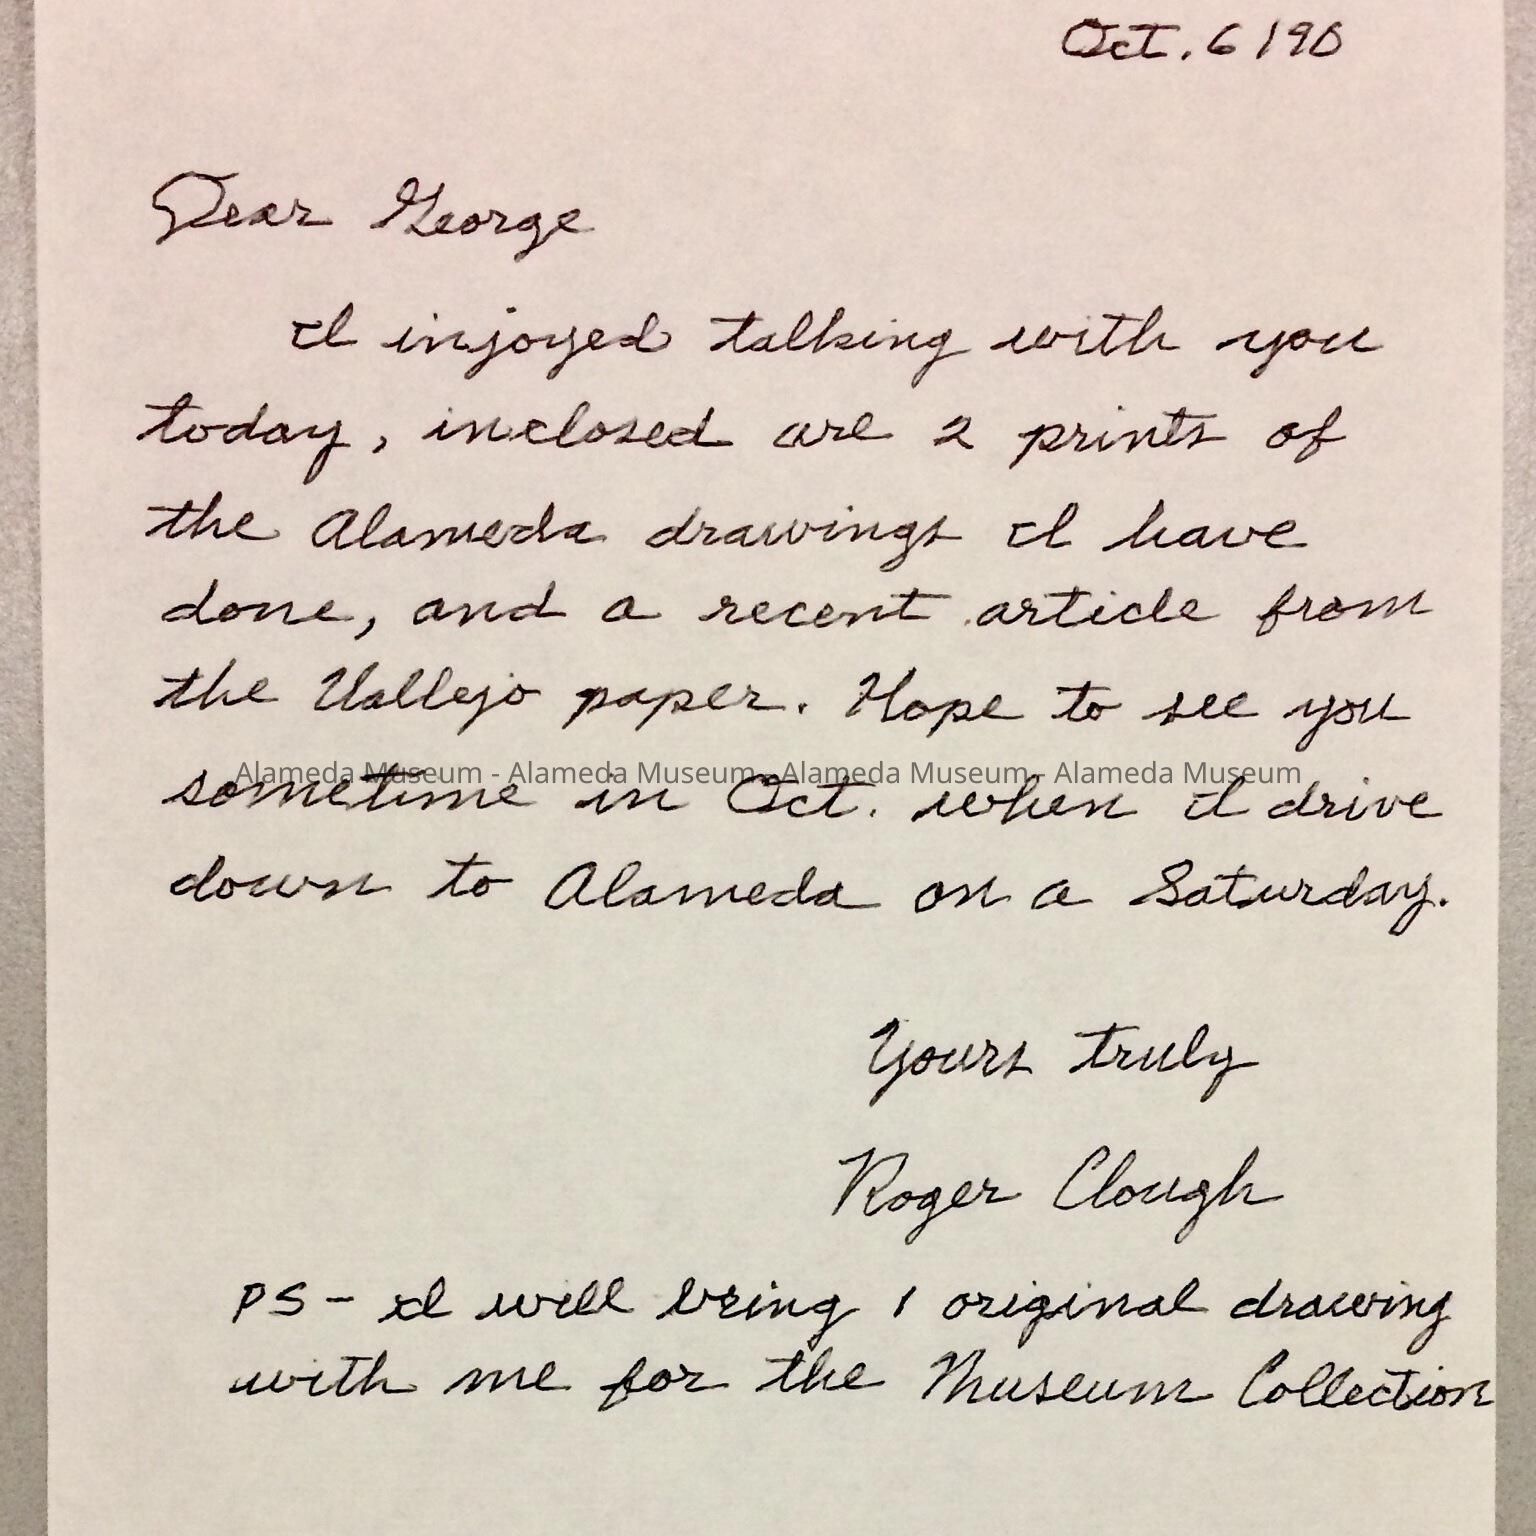 Oct. 6 190
Dear George
I injoyed talking with you
today, inclosed are 2 prints of
the Alameda drawings I have
done, and a recent article from
the Vallejo paper. Hope to see you
Alameda Museum - Alameda Museum - Alameda Museum - Alameda Museum
sometime in Oct. when I drive
down to Alameda on a Saturday.
Yours truly
Roger Clough
PS - I will bring 1 original drawing
with me for the Museum Collection